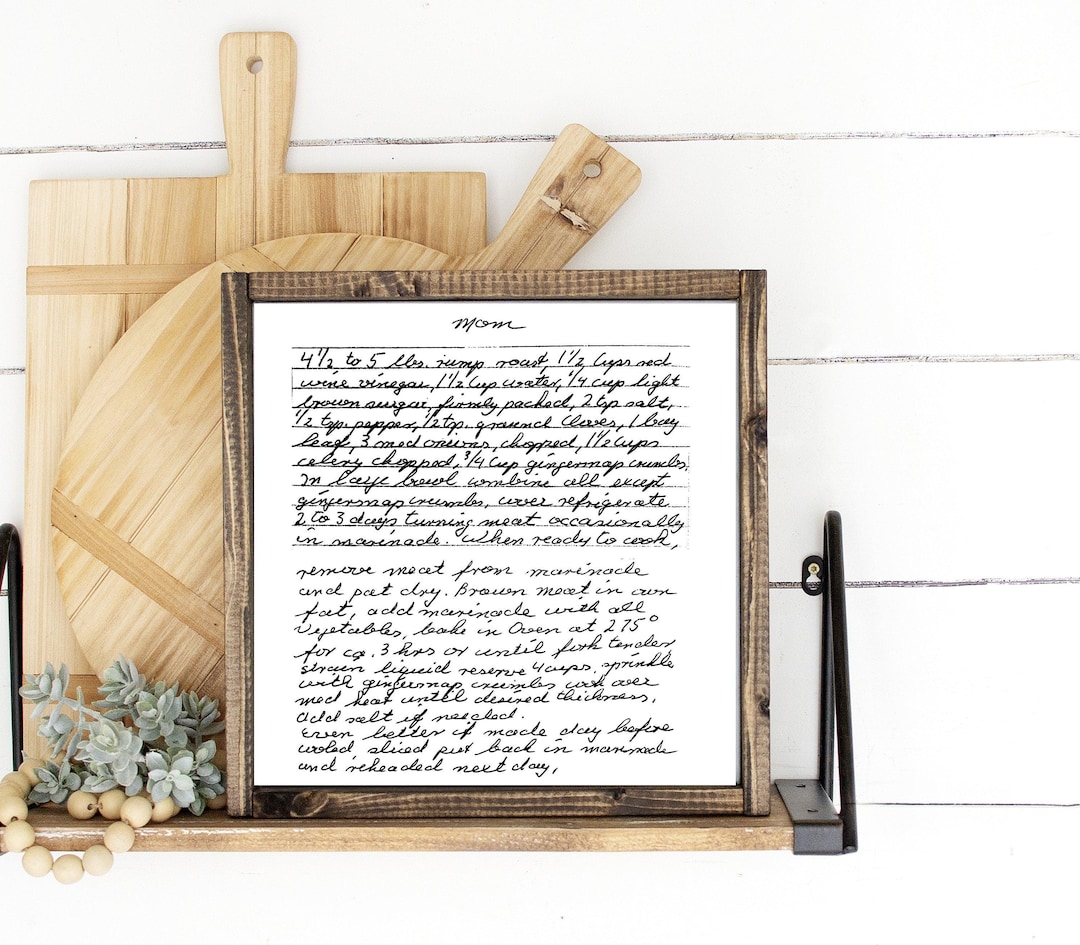 Mom
4 1/2 to 5 lbs. rump roast, 1 1/2 Cups red
wine vinegar, 1 1/2 Cup water, 1/4 cup light
brown sugar, firmly packed, 2 tsp salt,
1/2 tsp. pepper, 1/2 tsp. ground Cloves, 1 bay
leaf, 3 med onions, chopped, 1 1/2 Cups
celery chopped, 3/4 Cup gingersnap crumbs.
In large bowl combine all except
gingersnap crumbs, cover refrigerate
2 to 3 days turning meat occasionally
in marinade. When ready to cook,
remove meat from marinade
and pat dry. Brown meat in own
fat, add marinade with all
Vegetables, bake in Oven at 275°
for ca. 3 hrs or until fork tender,
strain liquid reserve 4 cups. sprinkle
with gingersnap crumbs cook over
med heat until desired thickness.
Add salt if needed.
Even better if made day before
cooled sliced put back in marinade
and reheaded next day.